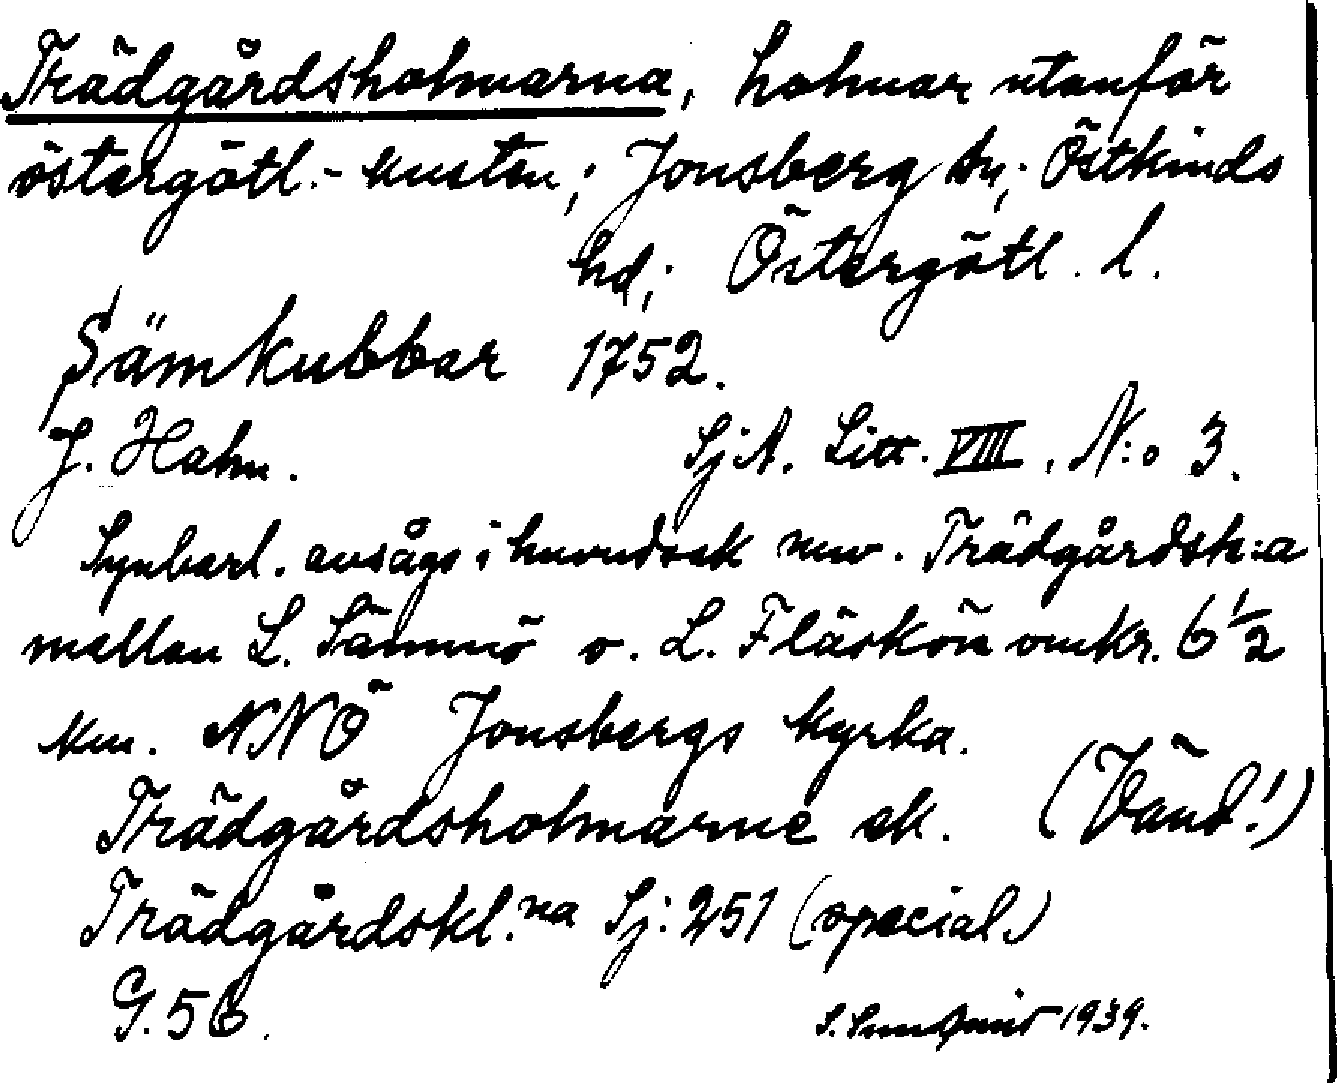 Trädgårdsholmarna, holmar utanför
östergötl.- kusten; Jonsberg sn; Östkinds
hd; Östergötl. l.
Sämkubbar 1752.
J. Hahn. SjA. Litt. VIII, N:o 3.
Synbarl. avsågs i huvudsak nuv. Trädgårdsh:a
mellan L. Sämmö o. L. Fläskön omkr. 6 1/2
km. NNÖ Jonsbergs kyrka.
Trädgårdsholmarne ek. (Vänd!)
Trädgårdskl.na Sj: 251 (special)
G. 56. S. Sundqvist 1939.